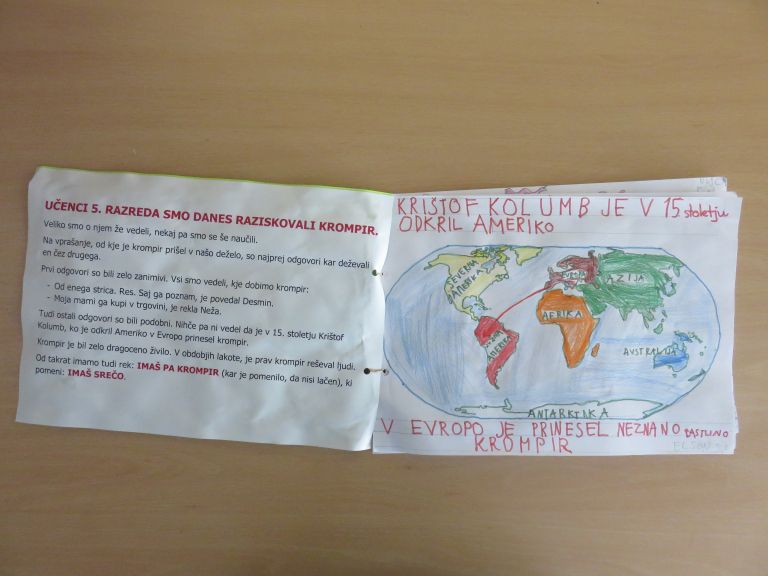 UČENCI 5. RAZREDA SMO DANES RAZISKOVALI KROMPIR.
Veliko smo o njem že vedeli, nekaj pa smo se še naučili.
Na vprašanje, od kje je krompir prišel v našo deželo, so najprej odgovori kar deževali
en čez drugega.
Prvi odgovori so bili zelo zanimivi. Vsi smo vedeli, kje dobimo krompir:
- Od enega strica. Res. Saj ga poznam, je povedal Desmin.
- Moja mami ga kupi v trgovini, je rekla Neža.
Tudi ostali odgovori so bili podobni. Nihče pa ni vedel da je v 15. stoletju Krištof
Kolumb, ko je odkril Ameriko v Evropo prinesel krompir.
Krompir je bil zelo dragoceno živilo. V obdobjih lakote, je prav krompir reševal ljudi.
Od takrat imamo tudi rek: IMAŠ PA KROMPIR (kar je pomenilo, da nisi lačen), ki
pomeni: IMAŠ SREČO.
KRIŠTOF KOLUMB JE V 15. stoletju
ODKRIL AMERIKO
SEVERNA
AMERIKA
EVROPA
AZIJA
AFRIKA
JUŽNA
AMERIKA
AVSTRALIJA
ANTARKTIKA
V EVROPO JE PRINESEL NEZNANO
KROMPIR